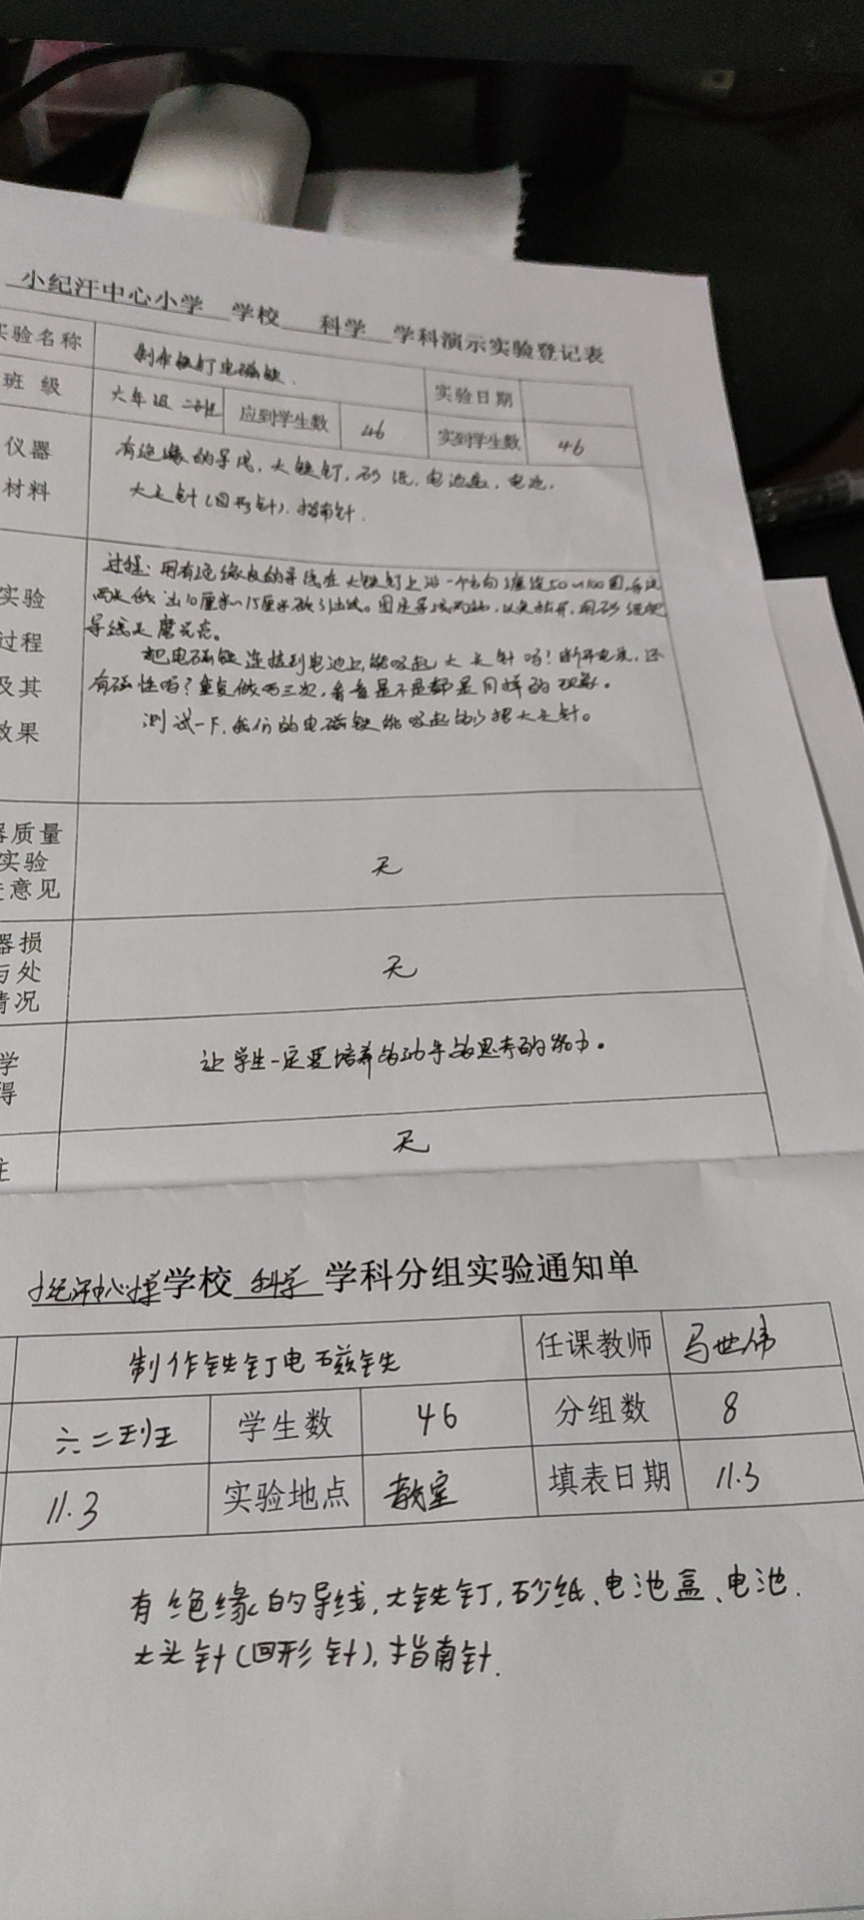 小纪汗中心小学 学校 科学 学科演示实验登记表
实验名称 制作铁钉电磁铁 实验日期
班级 六年级 二班 应到学生数 46 实到学生数 46
仪器 有绝缘的导线,大铁钉,砂纸,电池盒,电池,
材料 大头针(回形针),指南针.
过程:用有绝缘皮的导线在大铁钉上沿一个方向缠绕50~100圈,导线
实验 两头做出10厘米~15厘米做引出线。固定导线两端,以免松开,用砂纸把
过程 导线头磨光亮。
及其 把电磁铁连接到电池上,能吸起大头针吗?断开电流,还
有磁性吗?重复做两三次,看看是不是都是同样的现象。
效果 测试一下,我们的电磁铁能吸起多少根大头针。
器质量
实验 无
意见
器损
与处 无
情况
学 让学生一定要培养的动手的思考的能力。
得
注 无
小纪汗中心小学学校 科学 学科分组实验通知单
制作铁钉电磁铁 任课教师 马世伟
六.二班 学生数 46 分组数 8
11.3 实验地点 教室 填表日期 11.3
有绝缘的导线,大铁钉,砂纸、电池盒、电池.
大头针(回形针),指南针.